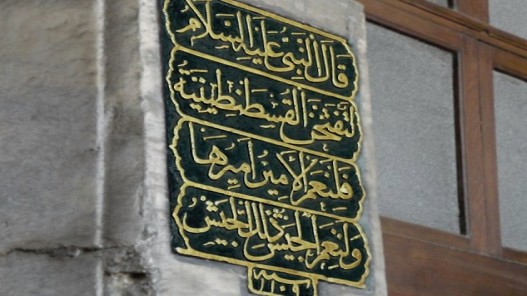 قال النبي عليه السلام
لتفتحن القسطنطينية
فلنعم الأمير أميرها
ولنعم الجيش ذلك الجيش
سنة